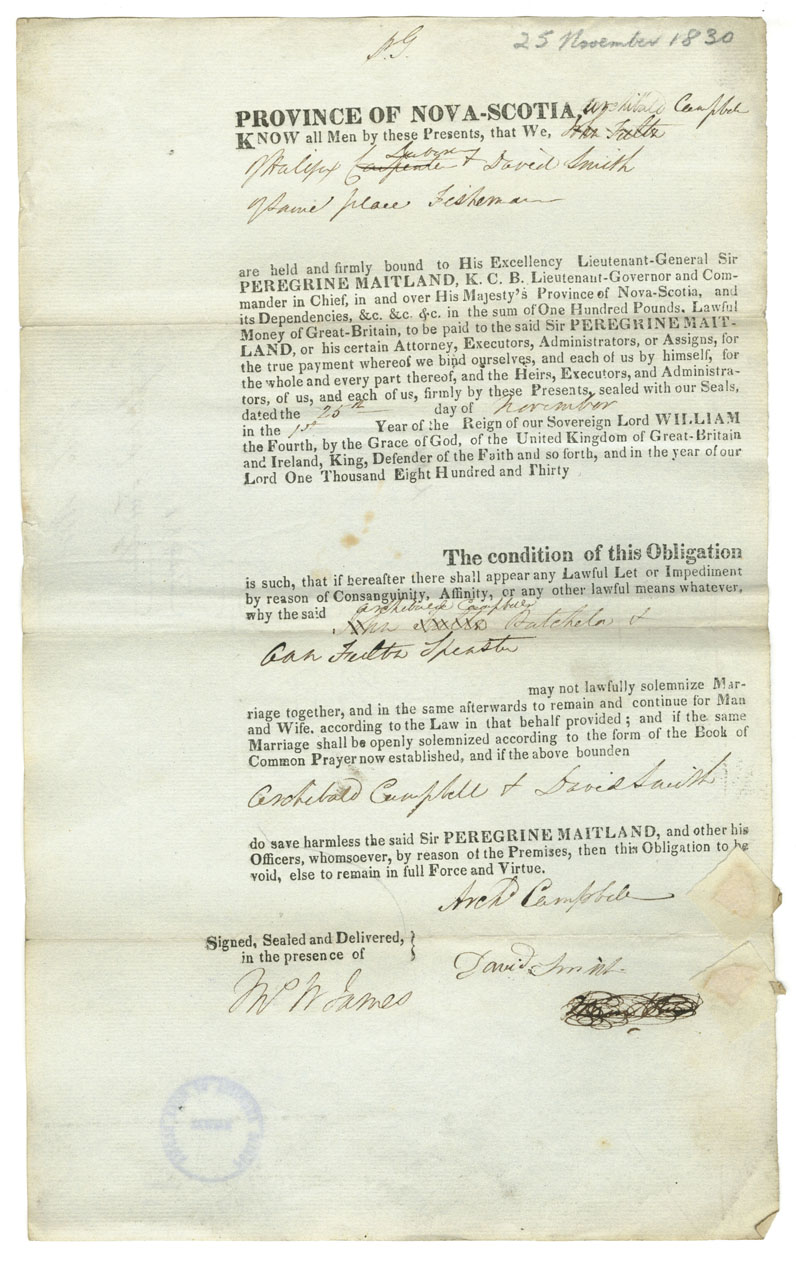 25 November 1830
PROVINCE OF NOVA-SCOTIA, Archibald Campbell
KNOW all Men by these Presents, that We, Ann Fulton
of Halifax Carpenter & David Smith
of same place Fisherman
are held and firmly bound to His Excellency Lieutenant-General Sir
PEREGRINE MAITLAND, K. C. B. Lieutenant-Governor and Com-
mander in Chief, in and over His Majesty's Province of Nova-Scotia, and
its Dependencies, &c. &c. &c. in the sum of One Hundred Pounds, Lawful
Money of Great-Britain, to be paid to the said Sir PEREGRINE MAIT-
LAND, or his certain Attorney, Executors, Administrators, or Assigns, for
the true payment whereof we bind ourselves, and each of us by himself, for
the whole and every part thereof, and the Heirs, Executors, and Administra-
tors, of us, and each of us, firmly by these Presents, sealed with our Seals,
dated the 25th day of November
in the 1st Year of the Reign of our Sovereign Lord WILLIAM
the Fourth, by the Grace of God, of the United Kingdom of Great-Britain
and Ireland, King, Defender of the Faith and so forth, and in the year of our
Lord One Thousand Eight Hundred and Thirty
The condition of this Obligation
is such, that if hereafter there shall appear any Lawful Let or Impediment
by reason of Consanguinity, Affinity, or any other lawful means whatever,
why the said Archibald Campbell
Batchelor &
Ann Fulton Spinster
may not lawfully solemnize Mar-
riage together, and in the same afterwards to remain and continue for Man
and Wife, according to the Law in that behalf provided; and if the same
Marriage shall be openly solemnized according to the form of the Book of
Common Prayer now established, and if the above bounden
Archibald Campbell & David Smith
do save harmless the said Sir PEREGRINE MAITLAND, and other his
Officers, whomsoever, by reason of the Premises, then this Obligation to be
void, else to remain in full Force and Virtue.
Archd Campbell
Signed, Sealed and Delivered,
in the presence of
David Smith
Wm W James